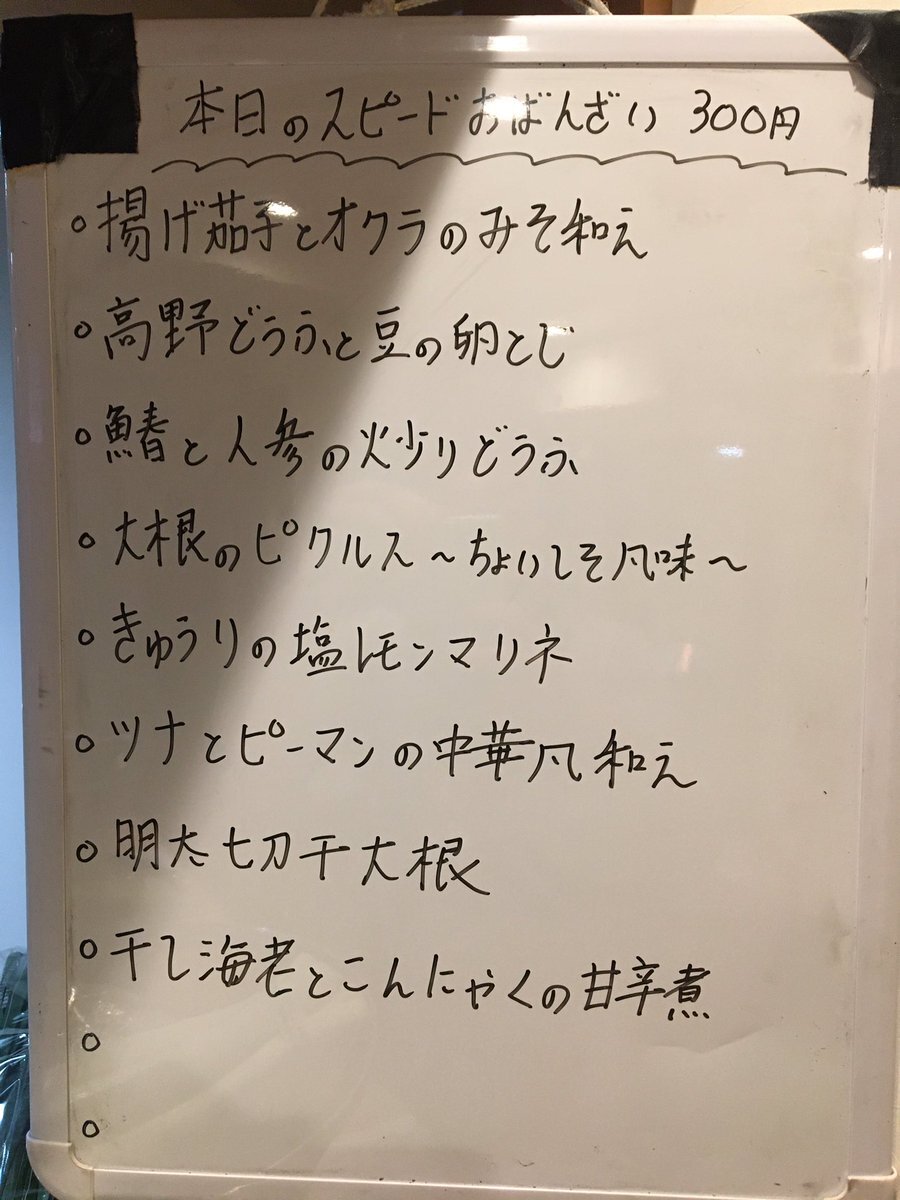 本日のスピードおばんざい 300円
○揚げ茄子とオクラのみそ和え
○高野どうふと豆の卵とじ
○鰆と人参の炒りどうふ
○大根のピクルス〜ちょいしそ風味〜
○きゅうりの塩レモンマリネ
○ツナとピーマンの中華風和え
○明太切干大根
○干し海老とこんにゃくの甘辛煮
○
○